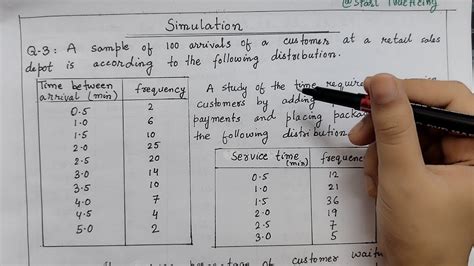 @Start Practicing
Simulation
Q-3: A sample of 100 arrivals of a customer at a retail sales
depot is according to the following distribution.
Time between arrival (min) frequency
0.5 2
1.0 6
1.5 10
2.0 25
2.5 20
3.0 14
3.5 10
4.0 7
4.5 4
5.0 2
A study of the time
customers by adding
payments and placing
the following distribution
Service time (min)
0.5 12
1.0 21
1.5 36
2.0 19
2.5 7
3.0 5
of customer